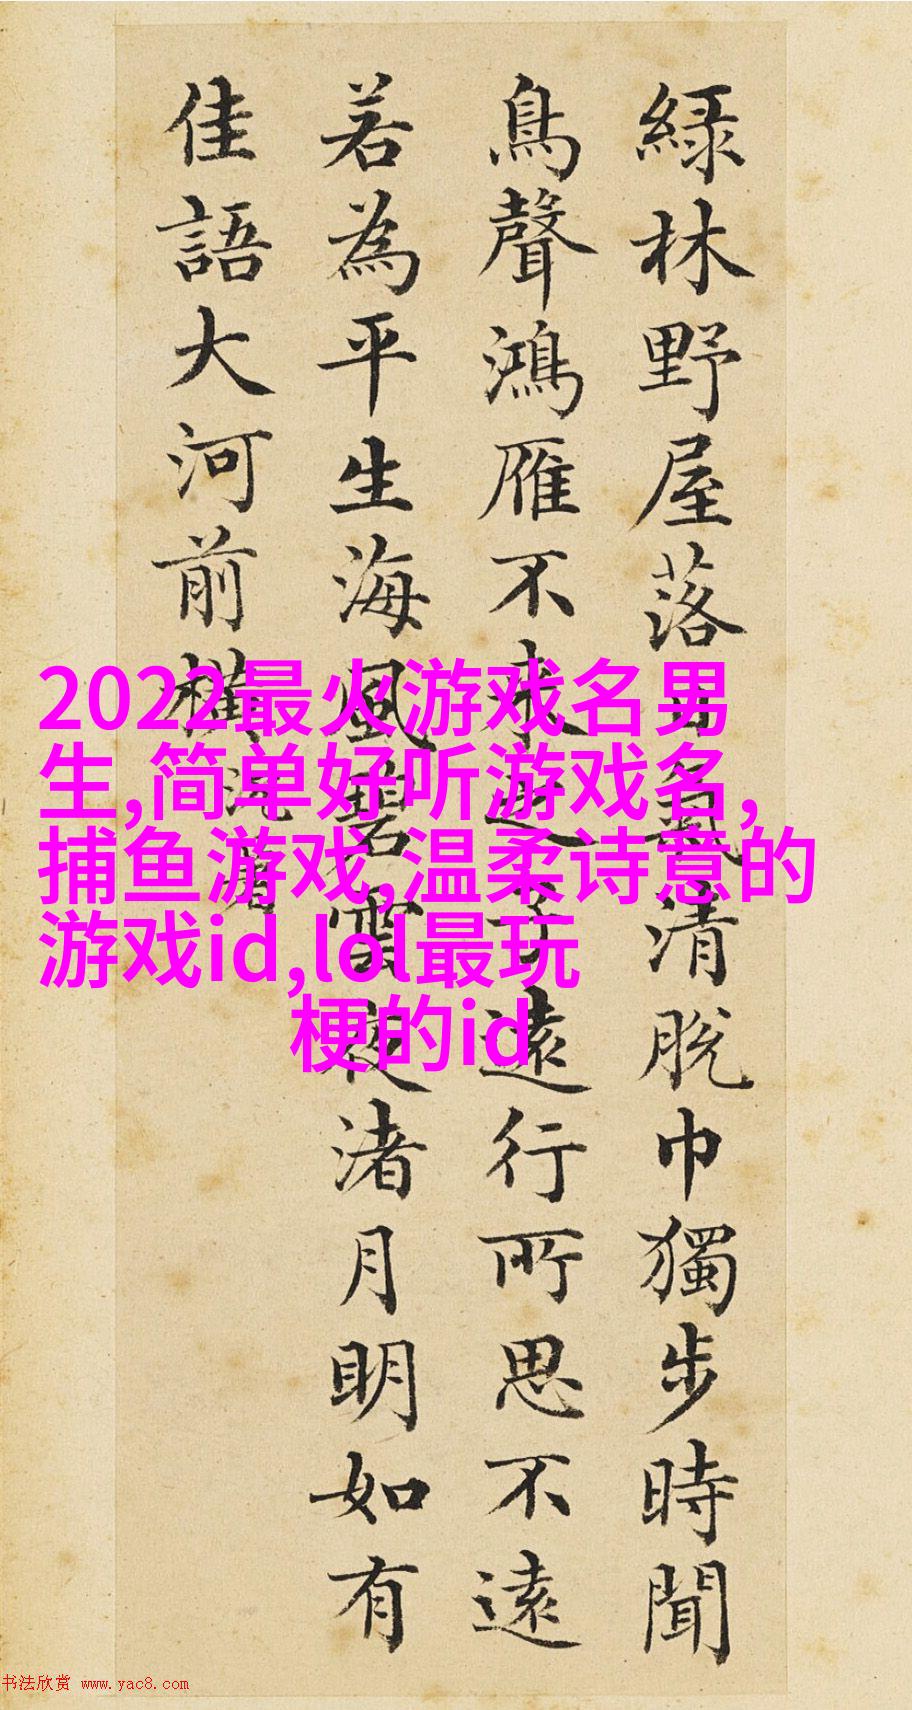 綠林野屋落日氣清脫巾獨步時聞
鳥聲鴻雁不來之子遠行所思不遠
若為平生海風碧雲夜渚月明如有
佳語大河前橫沈著
2022最火游戏名男
生,简单好听游戏名,
捕鱼游戏,温柔诗意的
游戏id,lol最玩
梗的id
书法欣赏 www.yac8.com